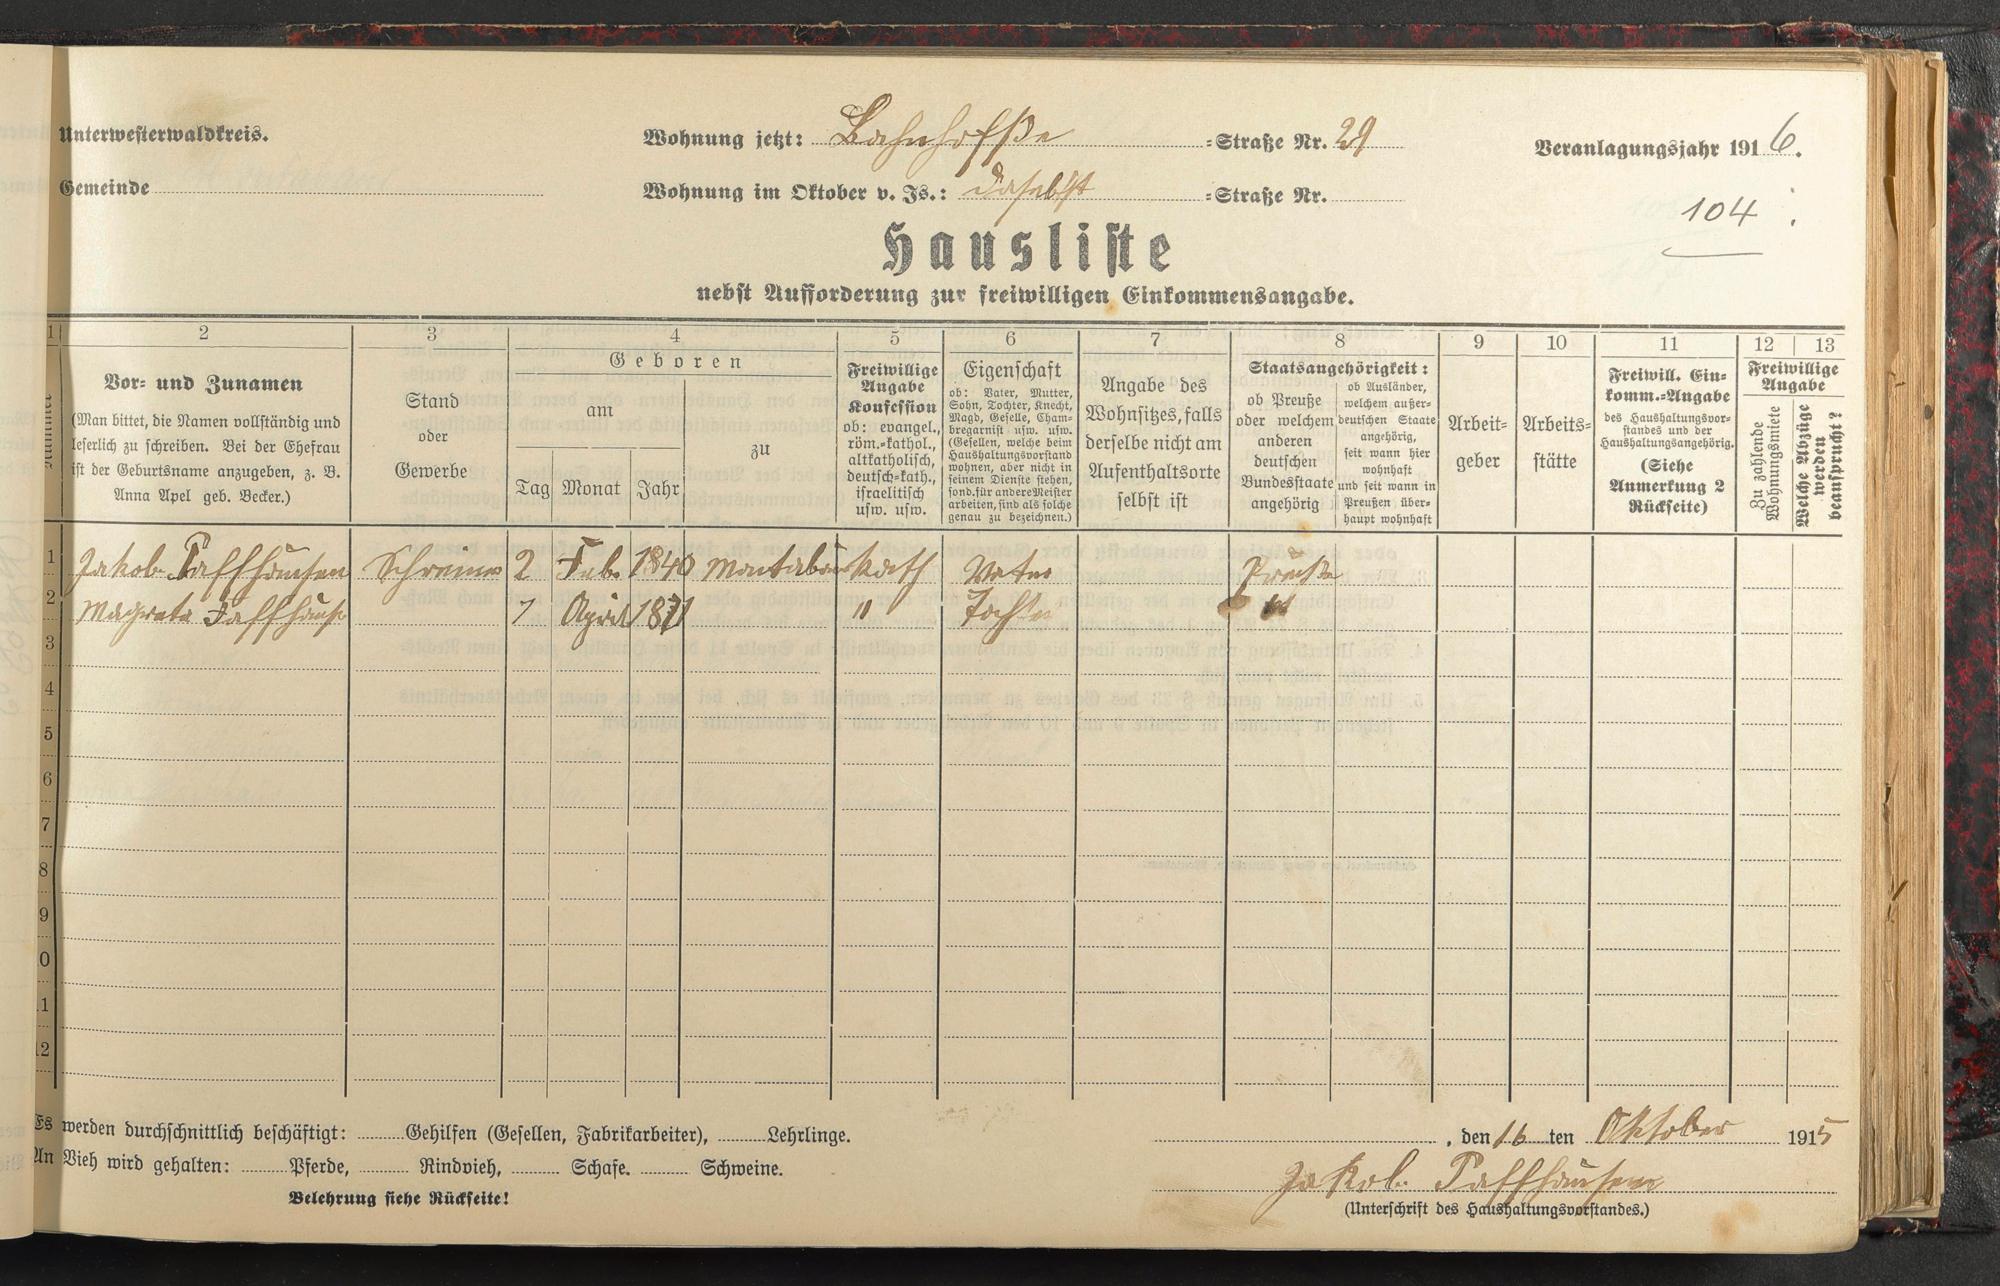 Unterwesterwaldkreis.
Gemeinde
Wohnung jetzt: Bahnhofstr =Straße Nr. 29
Wohnung im Oktober v. Js.: daselbst =Straße Nr.
Veranlagungsjahr 1916.
104
Hausliste
nebst Aufforderung zur freiwilligen Einkommensangabe.
1 2 3 4 5 6 7 8 9 10 11 12 13
Nummer
Vor= und Zunamen
(Man bittet, die Namen vollständig und
leserlich zu schreiben. Bei der Ehefrau
ist der Geburtsname anzugeben, z. B.
Anna Apel geb. Becker.)
Stand
oder
Gewerbe
Geboren
am
Tag Monat Jahr
zu
Freiwillige
Angabe
Konfession
ob: evangel.,
röm.=kathol.,
altkatholisch,
deutsch=kath.,
israelitisch
usw. usw.
Eigenschaft
ob: Vater, Mutter,
Sohn, Tochter, Knecht,
Magd, Geselle, Cham=
bregarnist usw. usw.
(Gesellen, welche beim
Haushaltungsvorstand
wohnen, aber nicht in
seinem Dienste stehen,
sond. für andere Meister
arbeiten, sind als solche
genau zu bezeichnen.)
Angabe des
Wohnsitzes, falls
derselbe nicht am
Aufenthaltsorte
selbst ist
Staatsangehörigkeit:
ob Preuße
oder welchem
anderen
deutschen
Bundesstaate
angehörig
ob Ausländer,
welchem außer=
deutschen Staate
angehörig,
seit wann hier
wohnhaft
und seit wann in
Preußen über=
haupt wohnhaft
Arbeit=
geber
Arbeits=
stätte
Freiwill. Ein=
komm.=Angabe
des Haushaltungsvor=
standes und der
Haushaltungsangehörig.
(Siehe
Anmerkung 2
Rückseite)
Freiwillige
Angabe
Zu zahlende
Wohnungsmiete
Welche Abzüge
werden
beansprucht?
1 Jakob Paffhausen Schreiner 2 Feb. 1840 Montabaur Kath Vater Preuße
2 Magreta Paffhause 7 April 1871 " Tochter "
3
4
5
6
7
8
9
10
11
12
Es werden durchschnittlich beschäftigt: Gehilfen (Gesellen, Fabrikarbeiter), Lehrlinge.
An Vieh wird gehalten: Pferde, Rindvieh, Schafe. Schweine.
Belehrung siehe Rückseite!
, den 16 ten Oktober 1915
Jakob Paffhausen
(Unterschrift des Haushaltungsvorstandes.)